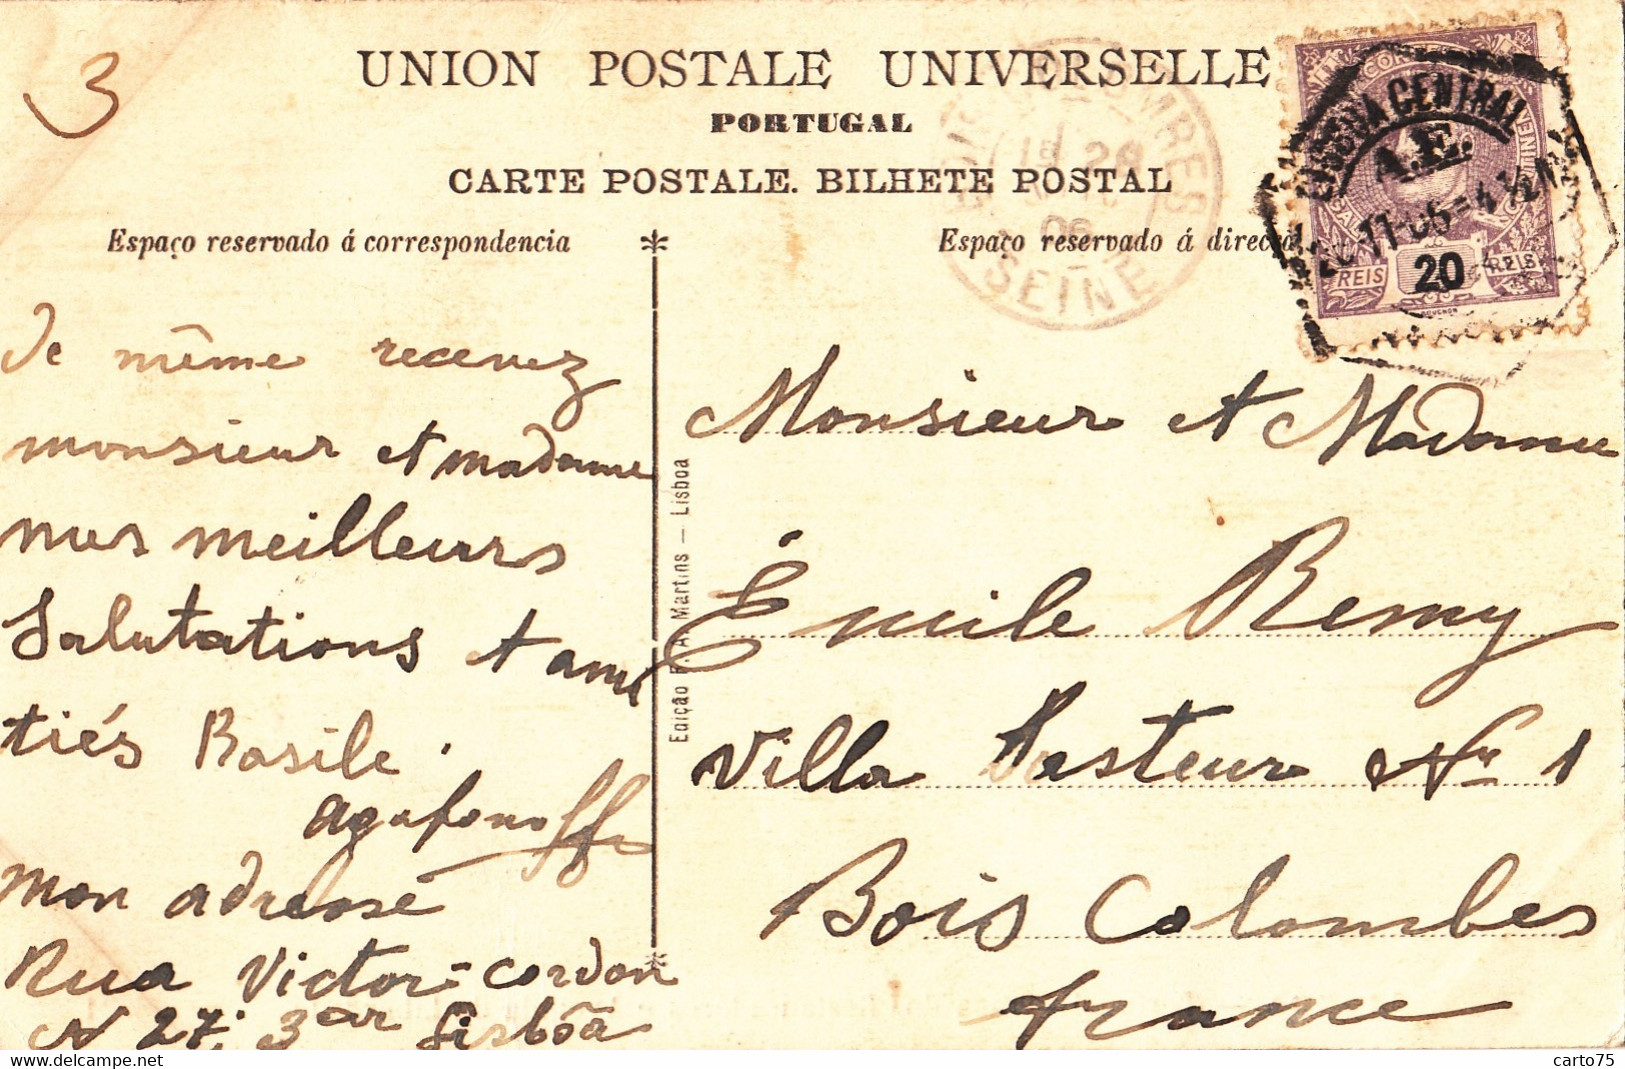 3
UNION POSTALE UNIVERSELLE
PORTUGAL
CARTE POSTALE. BILHETE POSTAL
Espaço reservado á correspondencia
Espaço reservado á direcçã
LISBOA CENTRAL
A.E.
11-06
20
REIS REIS
06
SEINE
De même recevez
monsieur et madame
nos meilleurs
Salutations et ami
tiés Basile.
Agafonoff
mon adresse
Rua Victor-Cordon
N 27, 3ar Lisbôa
Edição F. A. Martins — Lisboa
Monsieur et Madame
Émile Remy
Villa Pasteur No 1
Bois Colombes
France
carto75